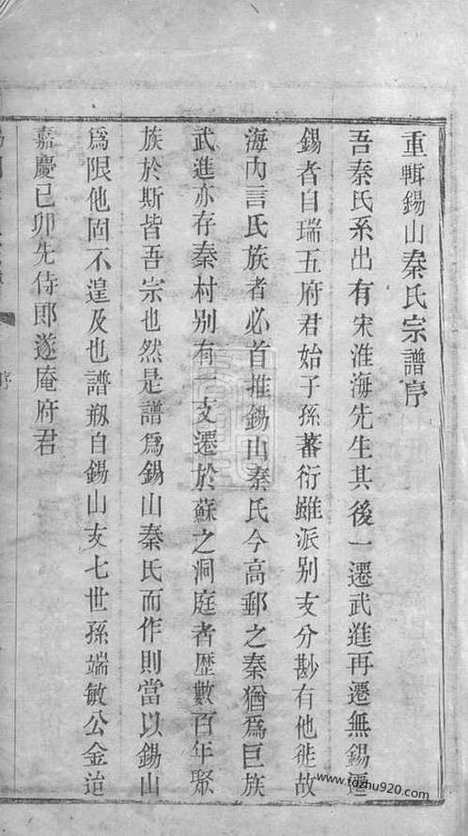 重輯錫山秦氏宗譜序
吾秦氏系出有宋淮海先生其後一遷武進再遷無錫遷
錫者自瑞五府君始子孫蕃衍雖派別支分尠有他徙故
海內言氏族者必首推錫山秦氏今高郵之秦猶爲巨族
武進亦存秦村別有一支遷於蘇之洞庭者歷數百年聚
族於斯皆吾宗也然是譜爲錫山秦氏而作則當以錫山
爲限他固不遑及也譜剏自錫山支七世孫端敏公金迨
嘉慶己卯先侍郎遂庵府君
序
www.fdzhu920.com